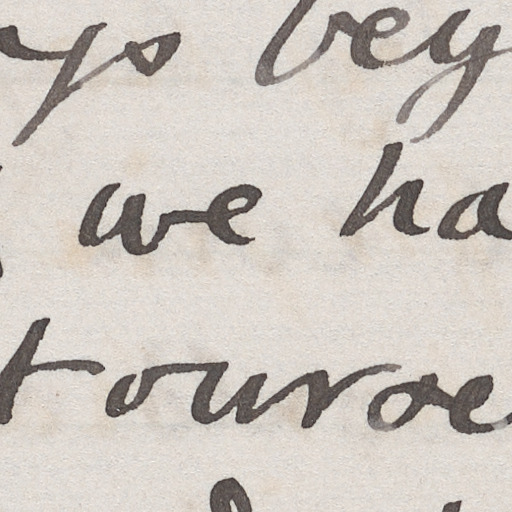 ys bey
we ha
t ourse